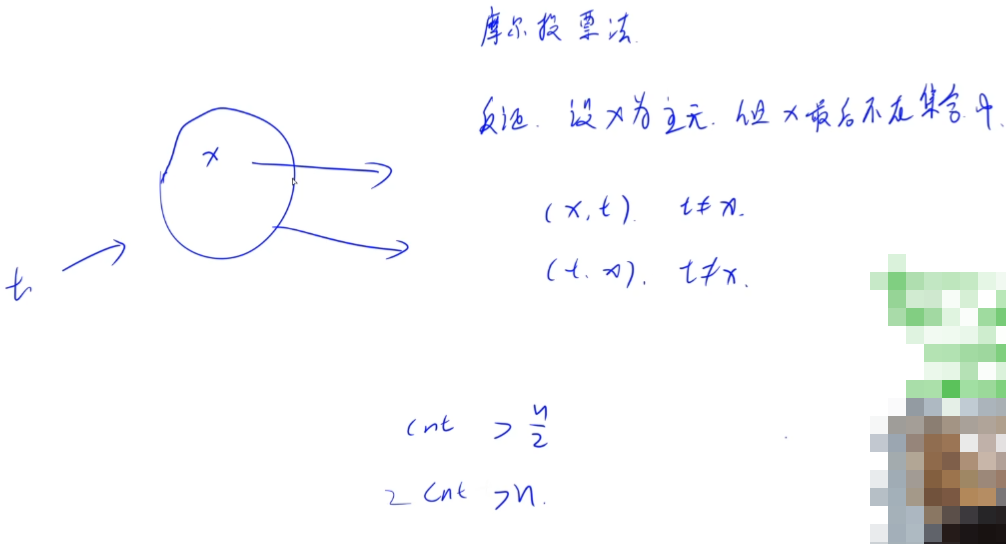 摩尔投票法
反证. 设x为主元. 但x最后不在集合中.
x
(x, t). t≠x.
t
(t. x). t≠x.
cnt > n/2
2 cnt >n.